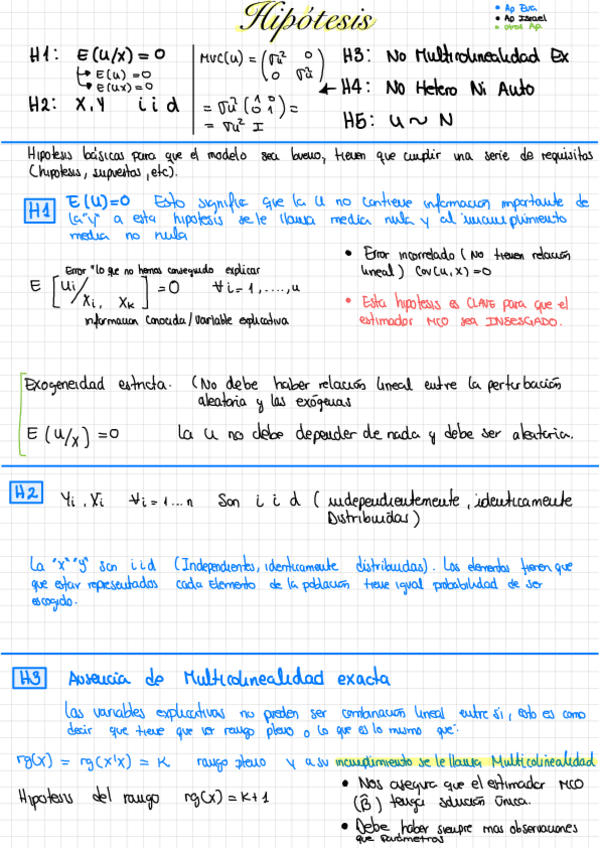 Hipótesis
• Ap Eva
• Ap Israel
• otros Ap.
H1: E(u/x) = 0
↳ E(u) = 0
↳ E(ux) = 0
H2: X, Y i i d
MVC(u) = (σu² 0
0 σu²)
= σu² (1 0
0 1) =
= σu² I
H3: No Multicolinealidad Ex
← H4: No Hetero Ni Auto
H5: U ~ N
Hipotesis básicas para que el modelo sea bueno, tienen que cumplir una serie de requisitos
(hipotesis, supuestos, etc).
H1 E(u)=0, Esto significa que la u no contiene informacion importante de
la "y" a esta hipotesis se le llama media nula y al incumplimiento
media no nula
Error "lo que no hemos conseguido explicar
E [ui/xi, xk] = 0 ∀ i = 1, ...., n
informacion conocida / variable explicativa
• Error incorrelado (No tienen relación
lineal) Cov(u, x) = 0
• Esta hipotesis es CLAVE para que el
estimador MCO sea INSESGADO.
Exogeneidad estricta. (No debe haber relación lineal entre la perturbación
aleatoria y las exógenas
E (u/x) = 0 la u no debe depender de nada y debe ser aleatoria.
H2 Yi, Xi ∀ i = 1 ... n Son i i d (independientemente, identicamente
Distribuidas)
La "x" "y" son i i d (Independientes, identicamente distribuidas). Los elementos tienen que
que estar representados cada Elemento de la población tiene igual probabilidad de ser
escogido.
H3 Ausencia de Multicolinealidad exacta
las variables explicativas no pueden ser combinación lineal entre si, esto es como
decir que tiene que ser rango pleno o lo que es lo mismo que:
rg(x) = rg(x'x) = K rango pleno y a su incumplimiento se le llama Multicolinealidad
Hipotesis del rango rg(x) = K+1
• Nos asegura que el estimador MCO
(β̂) tenga solución única.
• Debe haber siempre mas observaciones
que parámetros